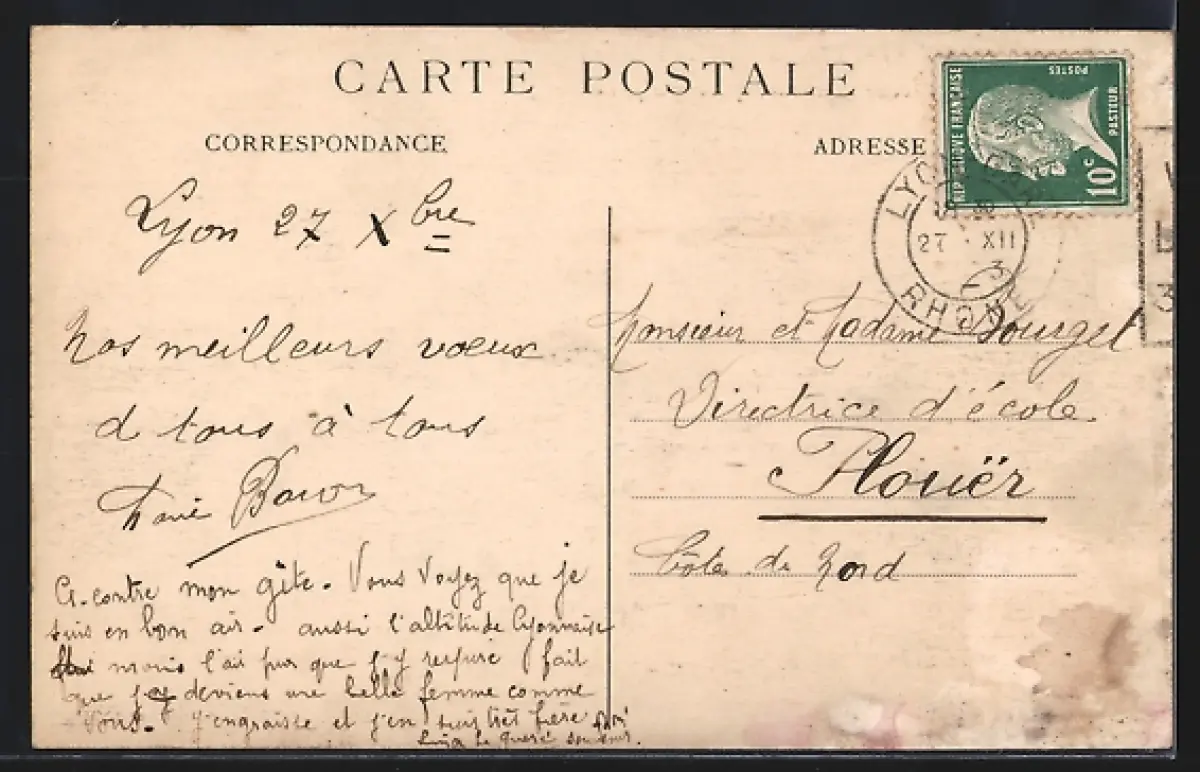 CARTE POSTALE
CORRESPONDANCE
ADRESSE
RÉPUBLIQUE FRANÇAISE
POSTES
PASTEUR
10c
LYON GARE
27 XII
3
RHÔNE
Lyon 27 Xbre
Nos meilleurs voeux
d tous à tous
Marie
Ci-contre mon gîte. Vous voyez que je
suis en bon air. aussi l'altitude lyonnaise
mais l'air pur que j'y respire fait
que je deviens une belle femme comme
vous. J'engraisse et j'en suis très fière
Monsieur et Madame Bourget
Directrice d'école
Plouër
Côtes du Nord